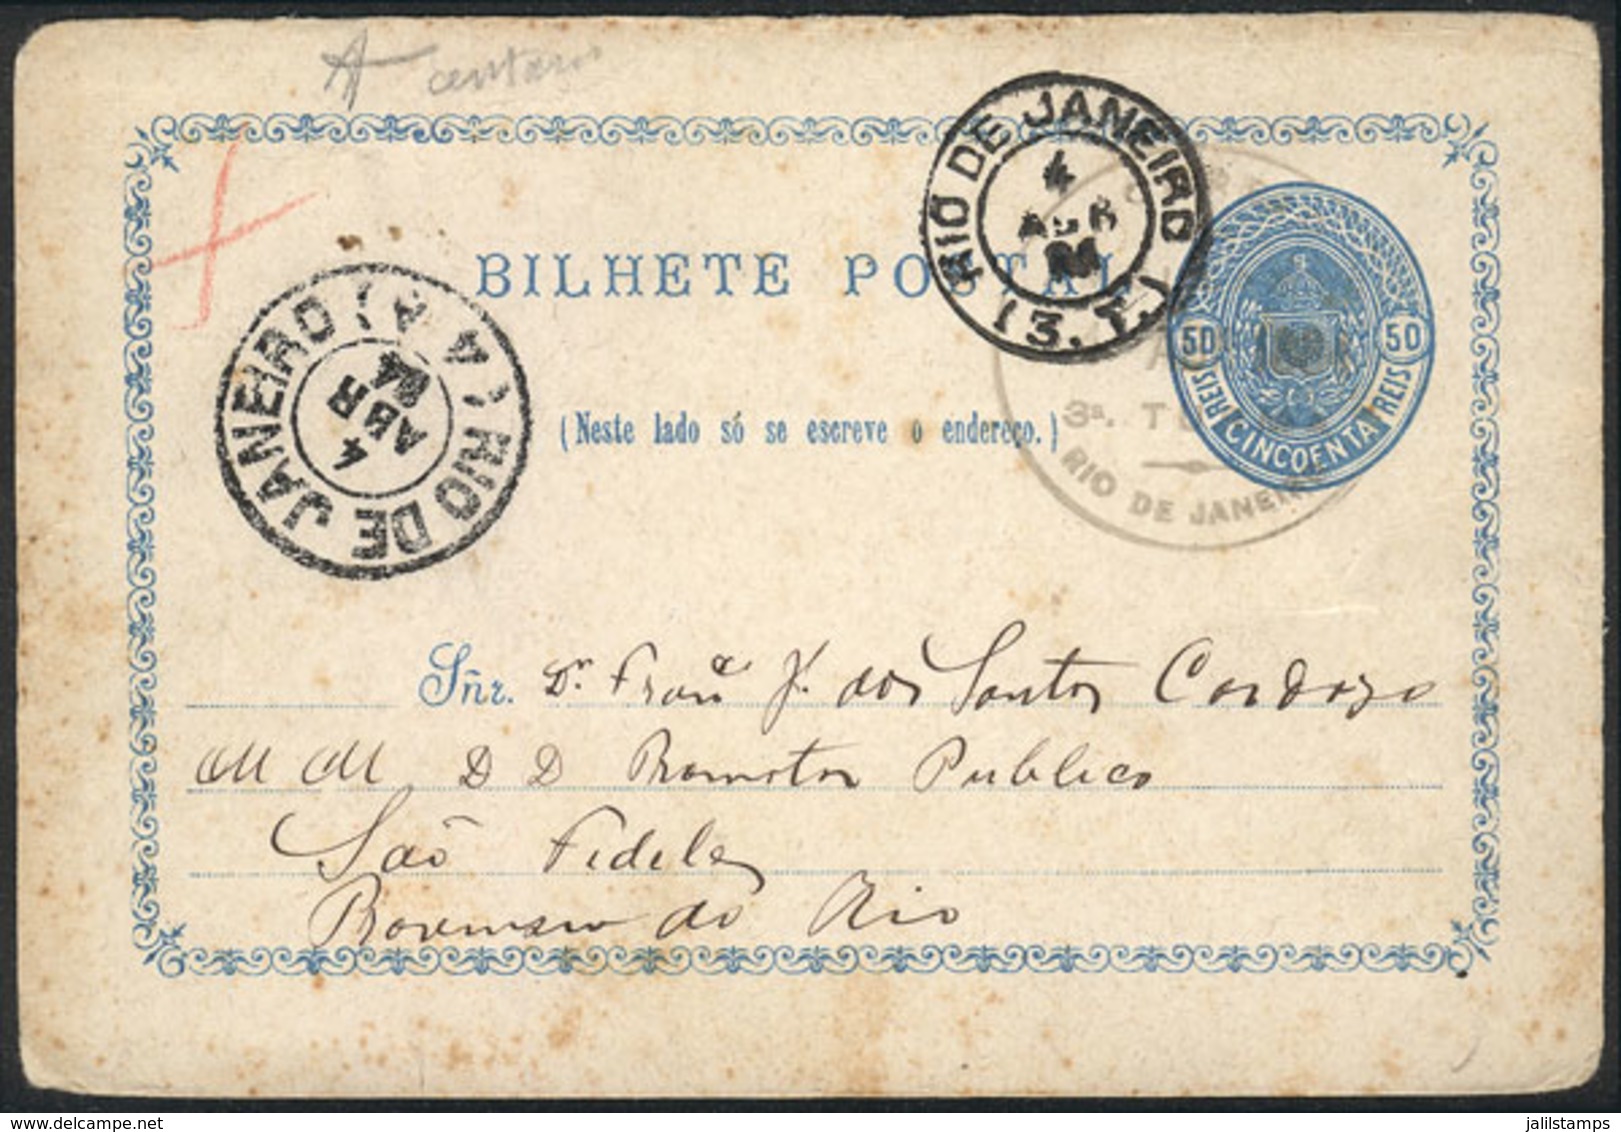 RIO DE JANEIRO
4
(3. T.)
BILHETE POSTAL
RIO DE JANEIRO
4
ABR
84
50 50
REIS REIS
CINCOENTA
(Neste lado só se escreve o endereço.)
3ª. T
RIO DE JANEIR
Sñr. Dr. Franc J. dos Santos Cardozo
MM DD Promotor Publico
São Fidelis
do Rio
jalilstamps